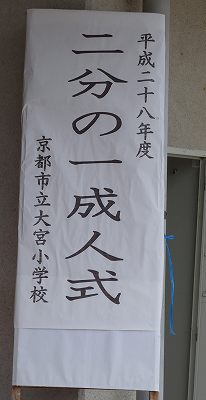 平成二十八年度
二分の一成人式
京都市立大宮小学校